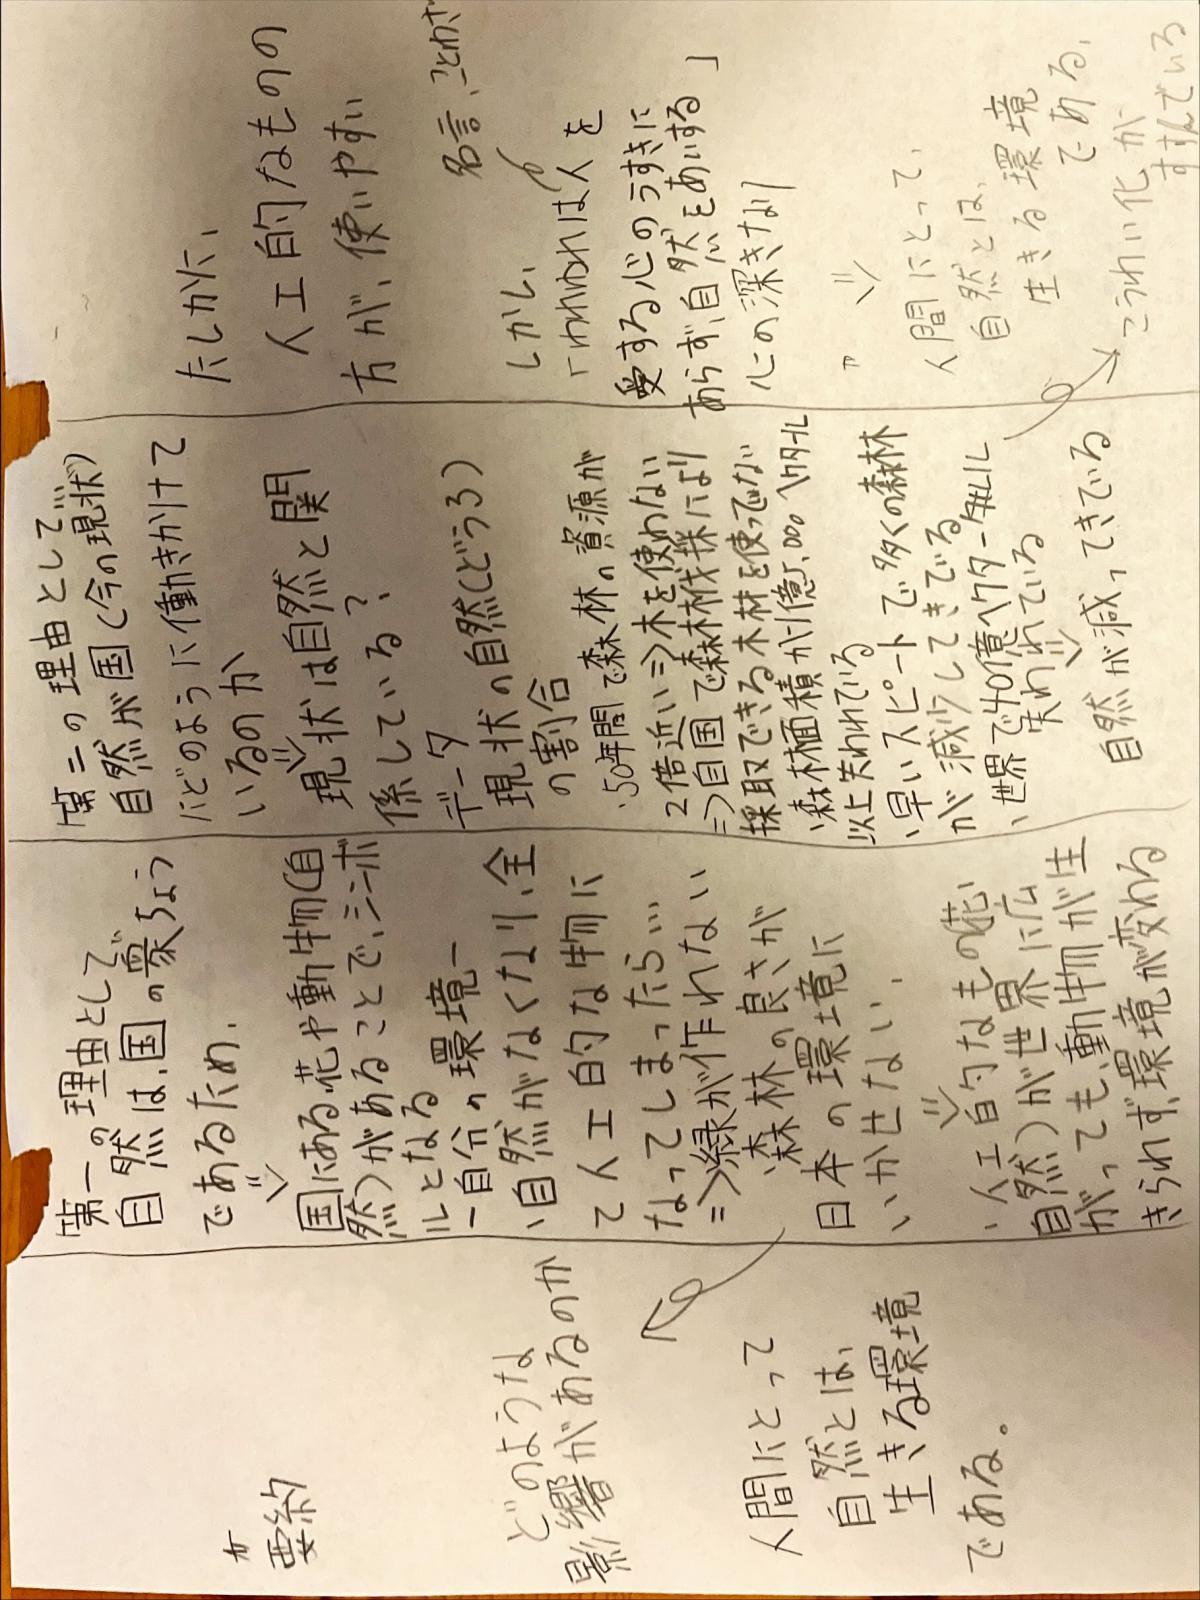 要約
どのような
影響があるのか
人間にとって
自然とは、
生きる環境
である。
第一の理由として
自然は、国の象ちょう
であるため、
国にある花や動物(自
然)があることで、シンボ
ルとなる
ー自分の環境ー
・自然がなくなり、全
て人工的な物に
なってしまったら…
=>緑が作れない
・森林の良さが
日本の環境に
いかせない、
・人工的なもの(花い
自然)が世界に広
がっても、動物が生
きられず、環境が変わる
第二の理由として
自然が国(今の現状)
にどのように働きかけて
いるのか
現状は自然と関
係している?
データ
現状の自然(どうろ)
の割合
・50年間で森林の資源が
2倍近い=>木を使わない
=>自国で森林伐採により
採取できる木材を使ってない
・森林面積が1億5,000ヘクタール
以上失われている
・早いスピートで多くの森林
が減少してきている
・世界で40億ヘクタール
失われている
自然が減ってきている
たしかに、
人工的なものの
方が、使いやすい
名言、ことわざ
しかし、
「われわれは人を
愛する心のうすきに
あらず、自然をあいする
心の深きなり
」
人間にとって、
自然とは、
生きる環境
である、
こうれい化が
すすんでいる